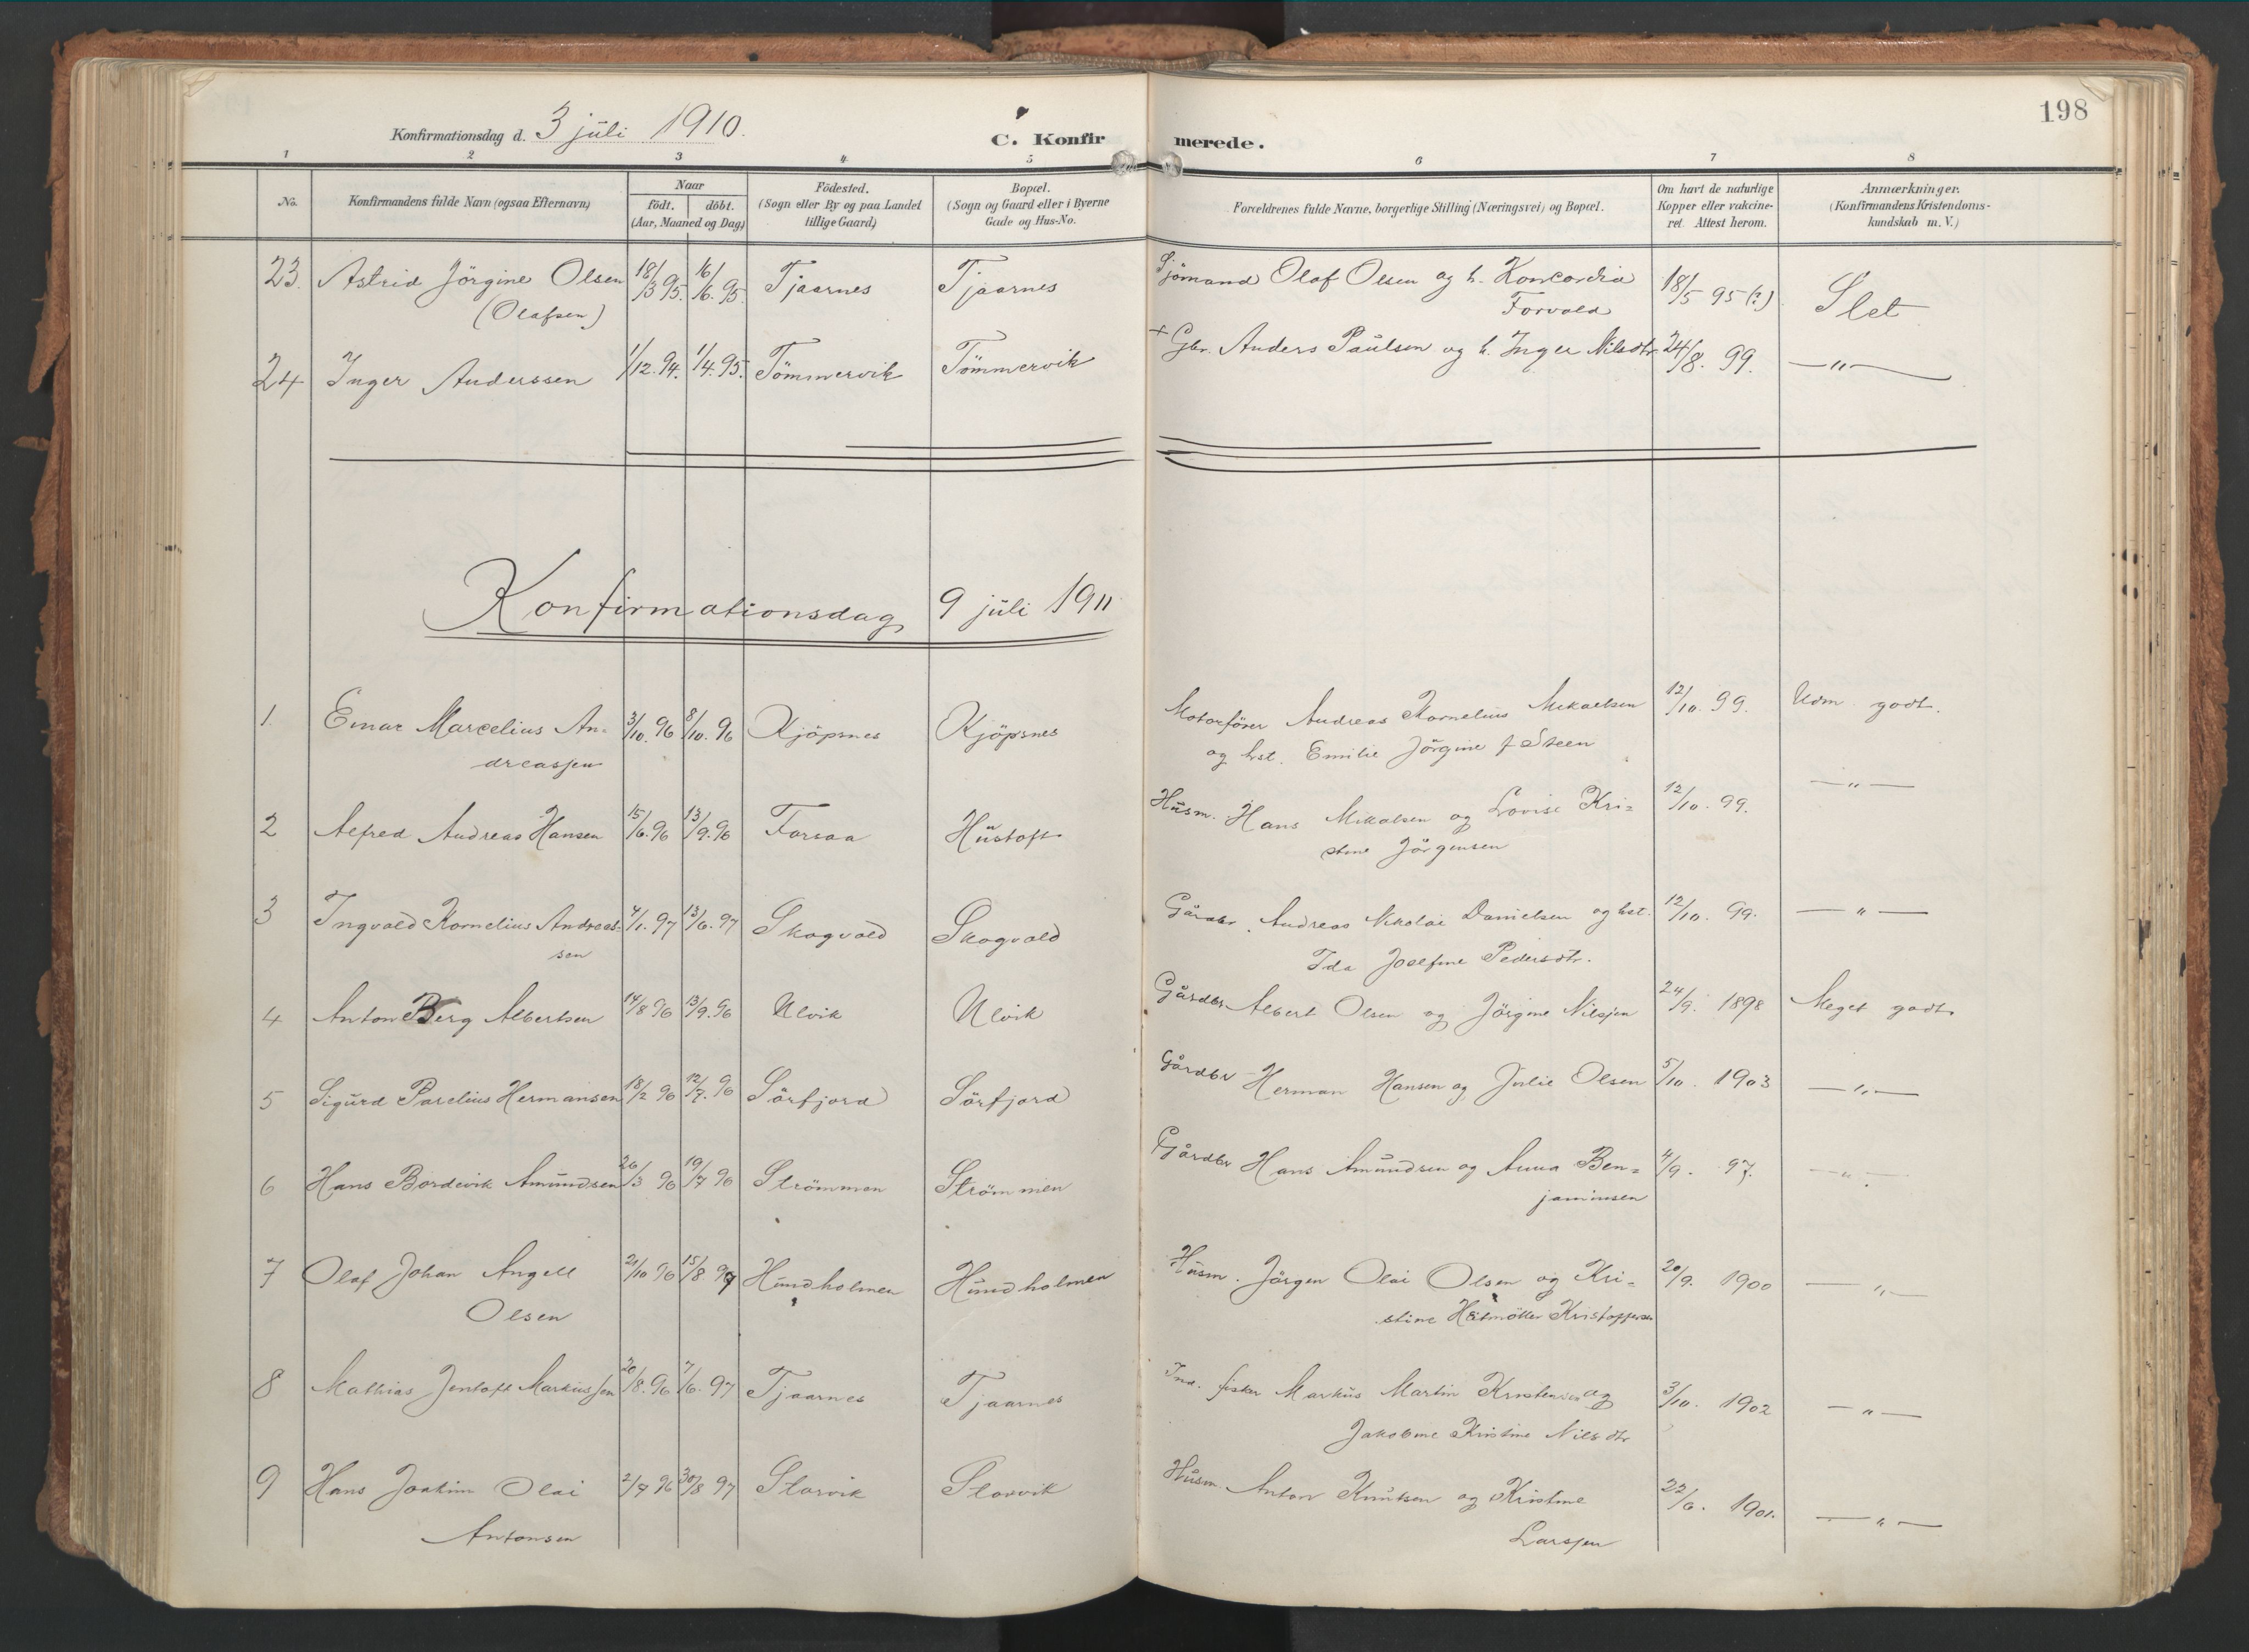 198
Konfirmationsdag d. 3 juli 1910.
C. Konfirmerede.
1 2 3 4 5 6 7 8
No.
Konfirmandens fulde Navn (ogsaa Efternavn)
Naar
födt. döbt.
(Aar, Maaned og Dag)
Födested.
(Sogn eller By og paa Landet
tillige Gaard)
Bopæl.
(Sogn og Gaard eller i Byerne
Gade og Hus-No.
Forældrenes fulde Navne, borgerlige Stilling (Næringsvei) og Bopæl.
Om havt de naturlige
Kopper eller vakcine-
ret. Attest herom.
Anmærkninger.
(Konfirmandens Kristendoms-
kundskab m. V.)
23. Astrid Jörgine Olsen 18/3 95. 16/6. 95. Tjaarnes Tjaarnes Sjömand Olaf Olsen og h. Konkordia 18/5 95 (?) Slet
(Olafsen) Forvald
24 Inger Anderssen 1/12. 94. 1/4. 95. Tömmervik Tömmervik + Gbr. Anders Paulsen og h. Inger Nilsdtr. 24/8. 99. —"—
Konfirmationsdag 9 juli 1911
1 Einar Marcelius An- 3/10. 96 8/10. 96 Kjöpsnes Kjöpsnes Motorförer Andreas Kornelius Mikaelsen 12/10. 99. Udm. godt.
dreassen og hst. Emilie Jörgine f Steen
2 Alfred Andreas Hansen 15/6. 96 13/9. 96 Forsaa Hustoft Husm. Hans Mikalsen og Lovise Kri= 12/10. 99. —"—
stine Jörgensen
3 Ingvald Kornelius Andreas= 4/1. 97 13/6. 97 Skogvold Skogvold Gårdbr. Andreas Nikolai Danielsen og hst. 12/10. 99. —"—
sen Ida Josefine Pedersdtr.
4 Anton Berg Albertsen 14/8 96 13/9. 96 Ulvik Ulvik Gårdbr. Albert Olsen og Jörgine Nilsjen 24/9. 1898 Meget godt.
5 Sigurd Parelius Hermansen 18/2 96 12/7. 96 Sörfjord Sörfjord Gårdbr Herman Hansen og Julie Olsen 5/10. 1903 —"—
6 Hans Bordevik Amundsen 26/3 96 19/7 96 Strömmen Strömmen Gårdbr Hans Amundsen og Anna Ben= 4/9. 97. —"—
jaminsen
7 Olaf Johan Angell 21/10 96 15/8 97 Hundholmen Hundholmen Husm. Jörgen Olai Olsen og Kri= 20/9. 1900 —"—
Olsen stine Kristoffersen
8 Mathias Jentoft Markussen 20/8. 96 7/6. 97 Tjaarnes Tjaarnes Ind. fisker Markus Martin Kristensen og 3/10. 1902 —"—
Jakobine Kristine Nilsdtr
9 Hans Joakim Olai 2/7 96 30/8 97 Storvik Storvik Husm. Anton Knutsen og Kristine 22/6. 1901. —"—
Antonsen Larssen